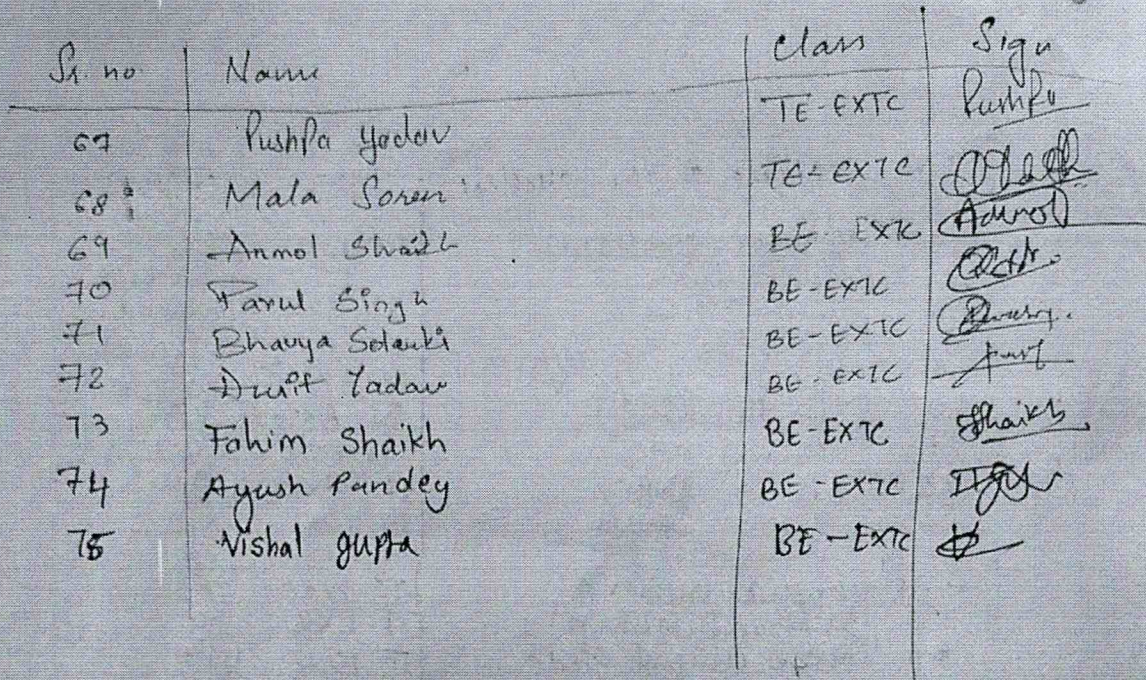 Sr. no Name Class Sign
67 Pushpa Yadav TE-EXTC Pushpa
68 Mala Soren TE-EXTC
69 Anmol Shaikh BE-EXTC Anmol
70 Parul Singh BE-EXTC
71 Bhavya Solanki BE-EXTC
72 Yadav BE-EXTC
73 Fahim Shaikh BE-EXTC Shaikh
74 Ayush Pandey BE-EXTC
75 Vishal gupta BE-EXTC